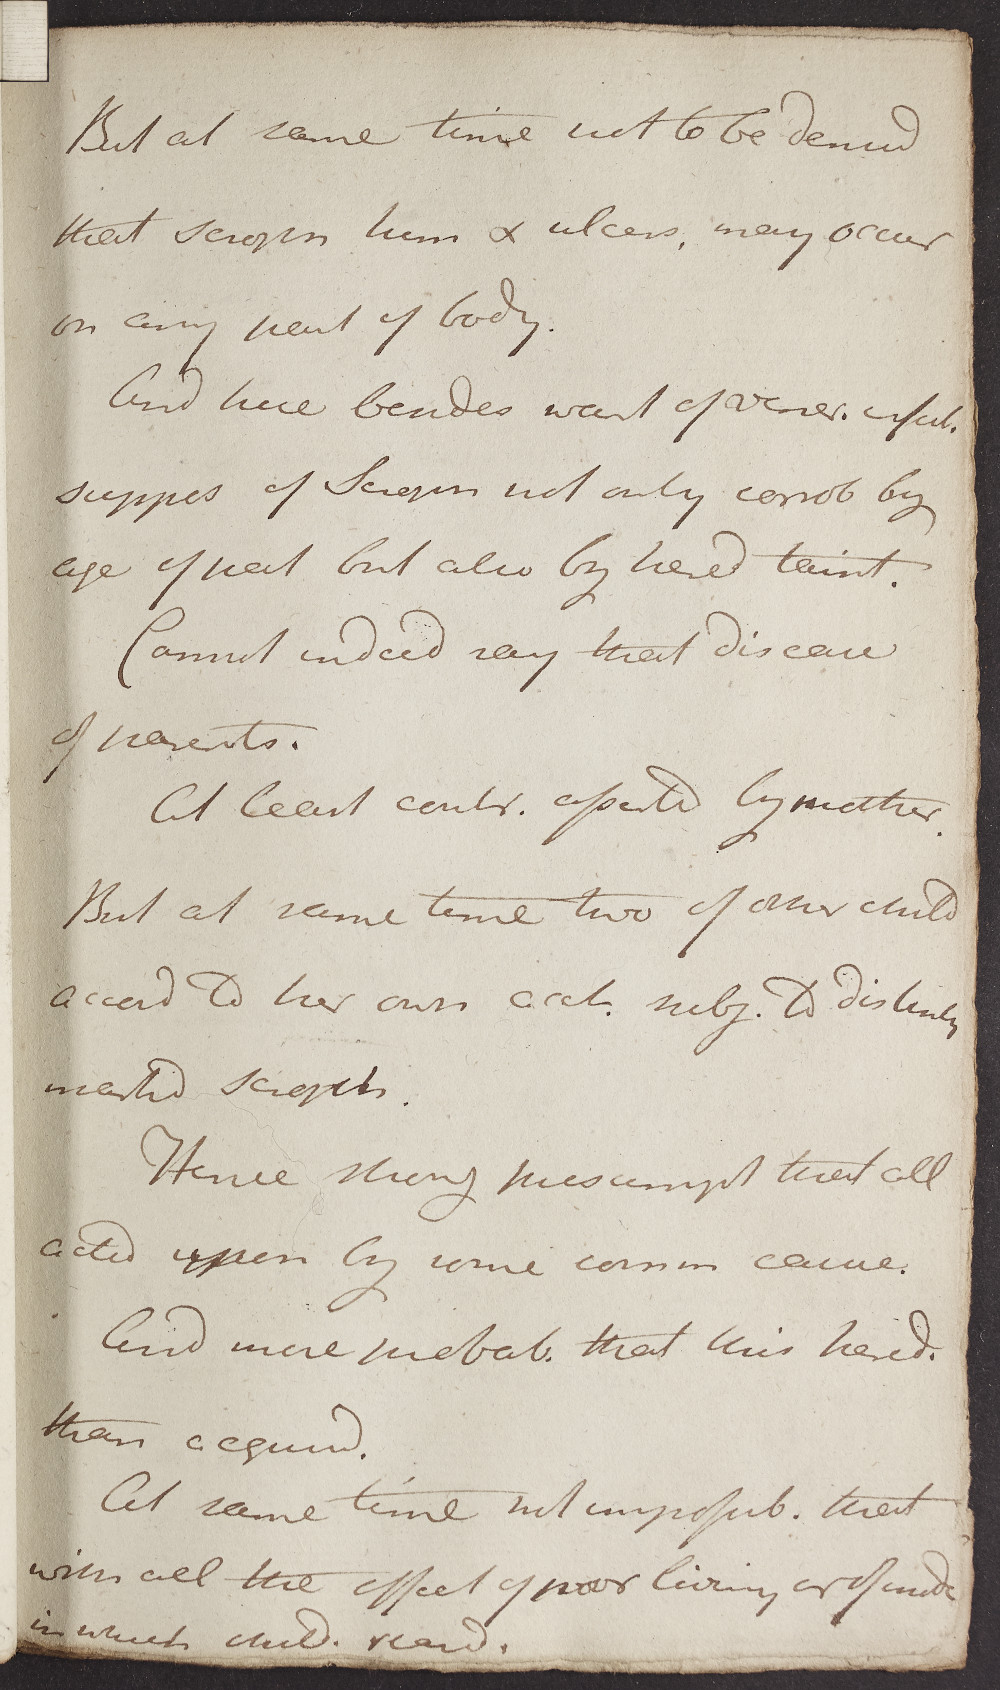 But at same time not to be denied
that scroph tum & ulcers, may occur
on any part of body.
And here besides want of vener. infect.
suppos of Scroph not only corrob by
age of pat but also by hered taint.
Cannot indeed say that disease
of parents.
At least contr. asserted by mother.
But at same time two of other child
accord to her own acct. subj. to distinctly
marked scroph.
Hence strong presumpt that all
acted upon by some comm cause.
And more probab. that this hered.
than acquired.
At same time not impossib. that
with all the effect of poor living or of mode
in which child. reard.